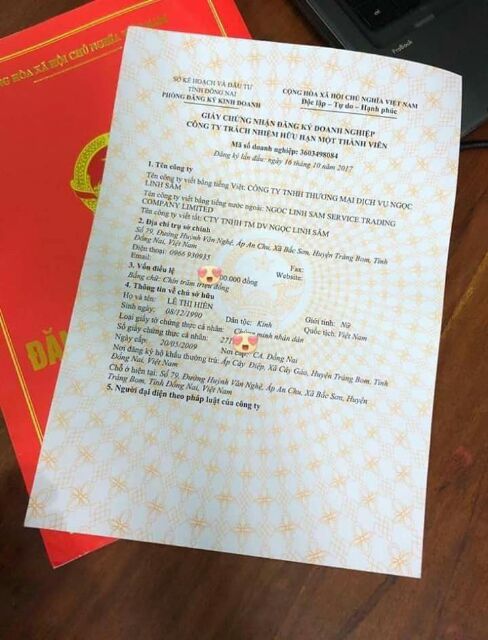 HÒA XÃ HỘI CHỦ NGHĨA VIỆT NAM
ProBook
SỞ KẾ HOẠCH VÀ ĐẦU TƯ
TỈNH ĐỒNG NAI
PHÒNG ĐĂNG KÝ KINH DOANH
CỘNG HÒA XÃ HỘI CHỦ NGHĨA VIỆT NAM
Độc lập - Tự do - Hạnh phúc
GIẤY CHỨNG NHẬN ĐĂNG KÝ DOANH NGHIỆP
CÔNG TY TRÁCH NHIỆM HỮU HẠN MỘT THÀNH VIÊN
Mã số doanh nghiệp: 3603498084
Đăng ký lần đầu: ngày 16 tháng 10 năm 2017
1. Tên công ty
Tên công ty viết bằng tiếng Việt: CÔNG TY TNHH THƯƠNG MẠI DỊCH VỤ NGỌC
LINH SÂM
Tên công ty viết bằng tiếng nước ngoài: NGOC LINH SAM SERVICE TRADING
COMPANY LIMITED
Tên công ty viết tắt: CTY TNHH TM DV NGỌC LINH SÂM
2. Địa chỉ trụ sở chính
Số 79, Đường Huỳnh Văn Nghệ, Ấp An Chu, Xã Bắc Sơn, Huyện Trảng Bom, Tỉnh
Đồng Nai, Việt Nam
Điện thoại: 0966 930935 Fax:
Email: Website:
3. Vốn điều lệ 00.000 đồng
Bằng chữ: Chín trăm triệu đồng
4. Thông tin về chủ sở hữu
Họ và tên: LÊ THỊ HIỀN Giới tính: Nữ
Sinh ngày: 08/12/1990 Dân tộc: Kinh Quốc tịch: Việt Nam
Loại giấy tờ chứng thực cá nhân: Chứng minh nhân dân
Số giấy chứng thực cá nhân: 271
Ngày cấp: 20/05/2009 Nơi cấp: CA. Đồng Nai
Nơi đăng ký hộ khẩu thường trú: Ấp Cây Điệp, Xã Cây Gáo, Huyện Trảng Bom, Tỉnh
Đồng Nai, Việt Nam
Chỗ ở hiện tại: Số 79, Đường Huỳnh Văn Nghệ, Ấp An Chu, Xã Bắc Sơn, Huyện
Trảng Bom, Tỉnh Đồng Nai, Việt Nam
5. Người đại diện theo pháp luật của công ty